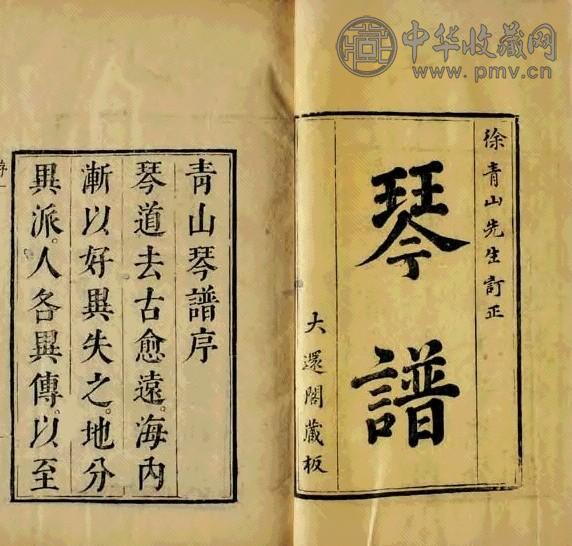 中华收藏网
www.pmv.cn
徐青山先生訂正
琴譜
大還閣藏板
青山琴譜序
琴道去古愈遠。海内
漸以好異失之。地分
異派。人各異傳。以至